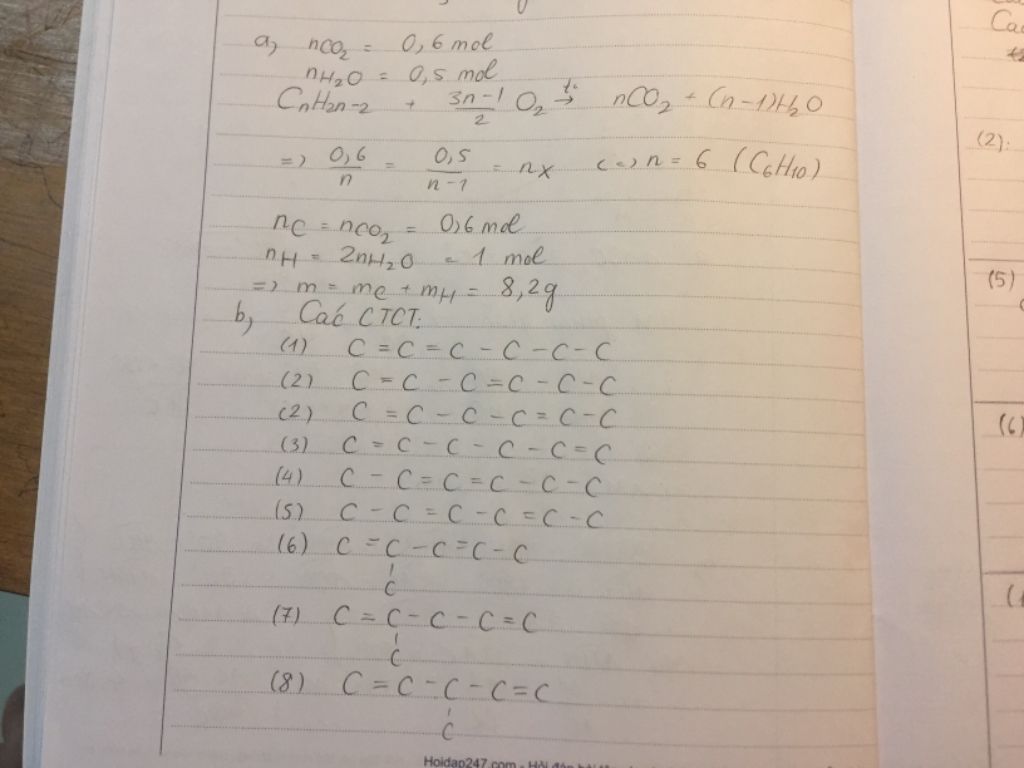 a, nCO2 = 0,6 mol
nH2O = 0,5 mol
CnH2n-2 + 3n-1/2 O2 t°→ nCO2 + (n-1)H2O
=> 0,6/n = 0,5/n-1 = nx <=> n = 6 (C6H10)
nC = nCO2 = 0,6 mol
nH = 2nH2O = 1 mol
=> m = mC + mH = 8,2g
b, Các CTCT:
(1) C = C = C - C - C - C
(2) C = C - C = C - C - C
(2) C = C - C - C = C - C
(3) C = C - C - C - C = C
(4) C - C = C = C - C - C
(5) C - C = C - C = C - C
(6) C = C - C = C - C
C
(7) C = C - C - C = C
C
(8) C = C - C - C = C
C
Hoidap247.com - Hỏi đáp
(2):
(5)
(6)